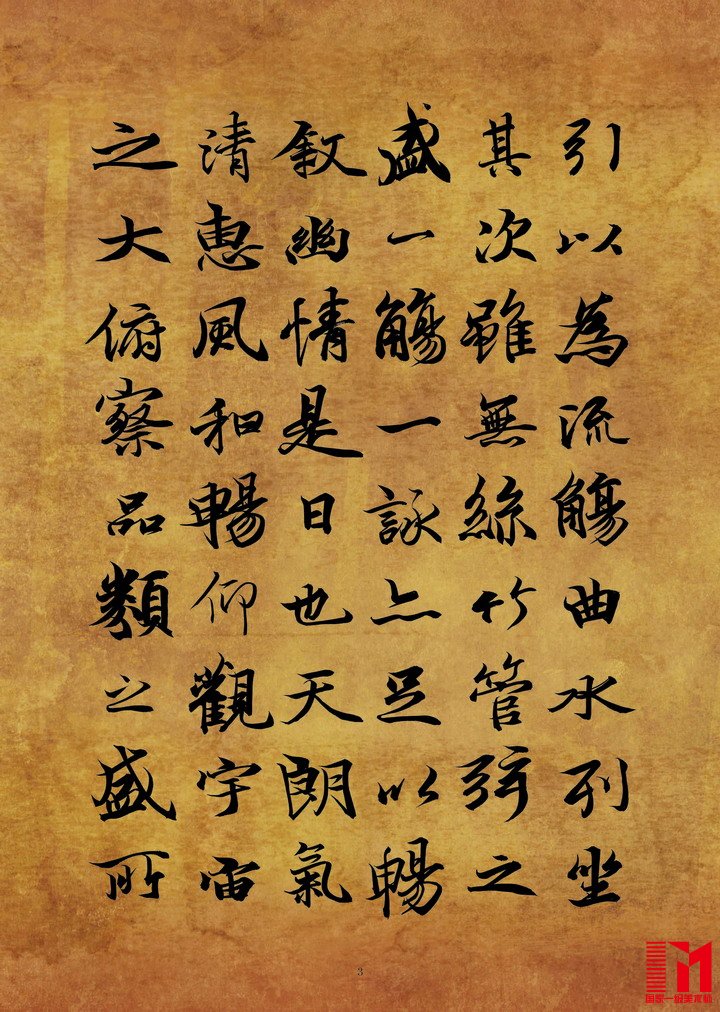 引以為流觴曲水列坐
其次雖無絲竹管弦之
盛一觴一詠亦足以暢
敘幽情是日也天朗氣
清惠風和暢仰觀宇宙
之大俯察品類之盛所
3
国家一级美术师